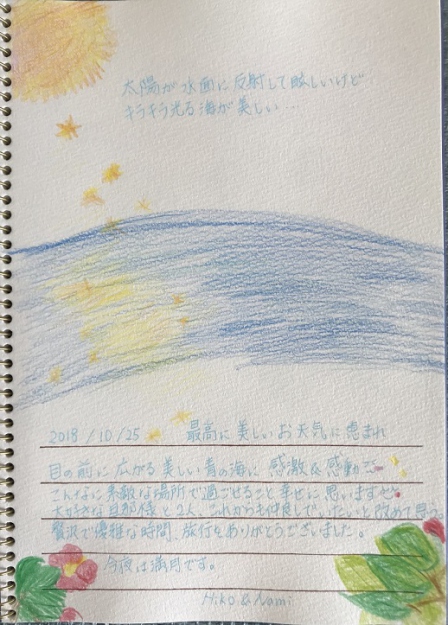 太陽が水面に反射して眩しいけど
キラキラ光る海が美しい…
2018/10/25 最高に美しいお天気に恵まれ
目の前に広がる美しい青の海に感激&感動で
こんなに素敵な場所で過ごせること幸せに思います
大好きな旦那様と2人、これからも仲良しでいたいと改めて思う
贅沢で優雅な時間、旅行をありがとうございました。
今夜は満月です。
Hiko & Nami